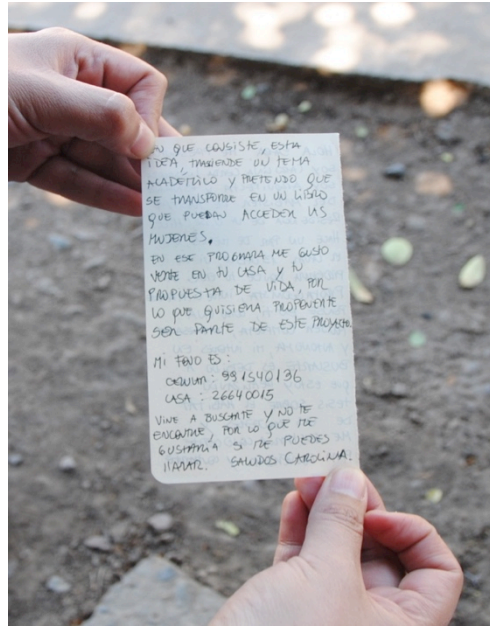 EN QUE CONSISTE, ESTA
IDEA, TRASCIENDE UN TEMA
ACADÉMICO Y PRETENDO QUE
SE TRANSFORME EN UN LIBRO
QUE PUEDAN ACCEDER LAS
MUJERES.
EN ESE PROGRAMA ME GUSTO
VERTE EN TU CASA Y TU
PROPUESTA DE VIDA, POR
LO QUE QUISIERA PROPONERTE
SER PARTE DE ESTE PROYECTO.
MI FONO ES:
CELULAR: 991540136
CASA : 26640015
VINE A BUSCARTE Y NO TE
ENCONTRE, POR LO QUE ME
GUSTARÍA SI ME PUEDES
LLAMAR. SALUDOS CAROLINA.